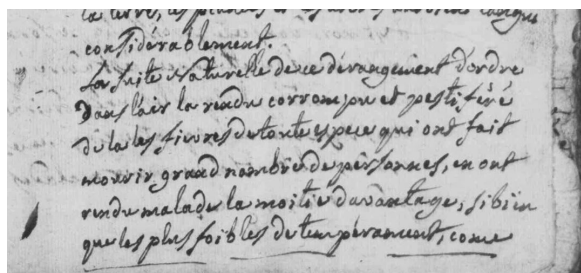 la terre, les plantes et
considérablement.
La suite naturelle de ce dérangement d'ordre
dans l'air la rendu corrompu et pestiféré
de la les fievres de toute espece qui ont fait
mourir grand nombre de personnes, en ont
rendu malade la moitié davantage, si bien
que les plus foibles de tempérament, come